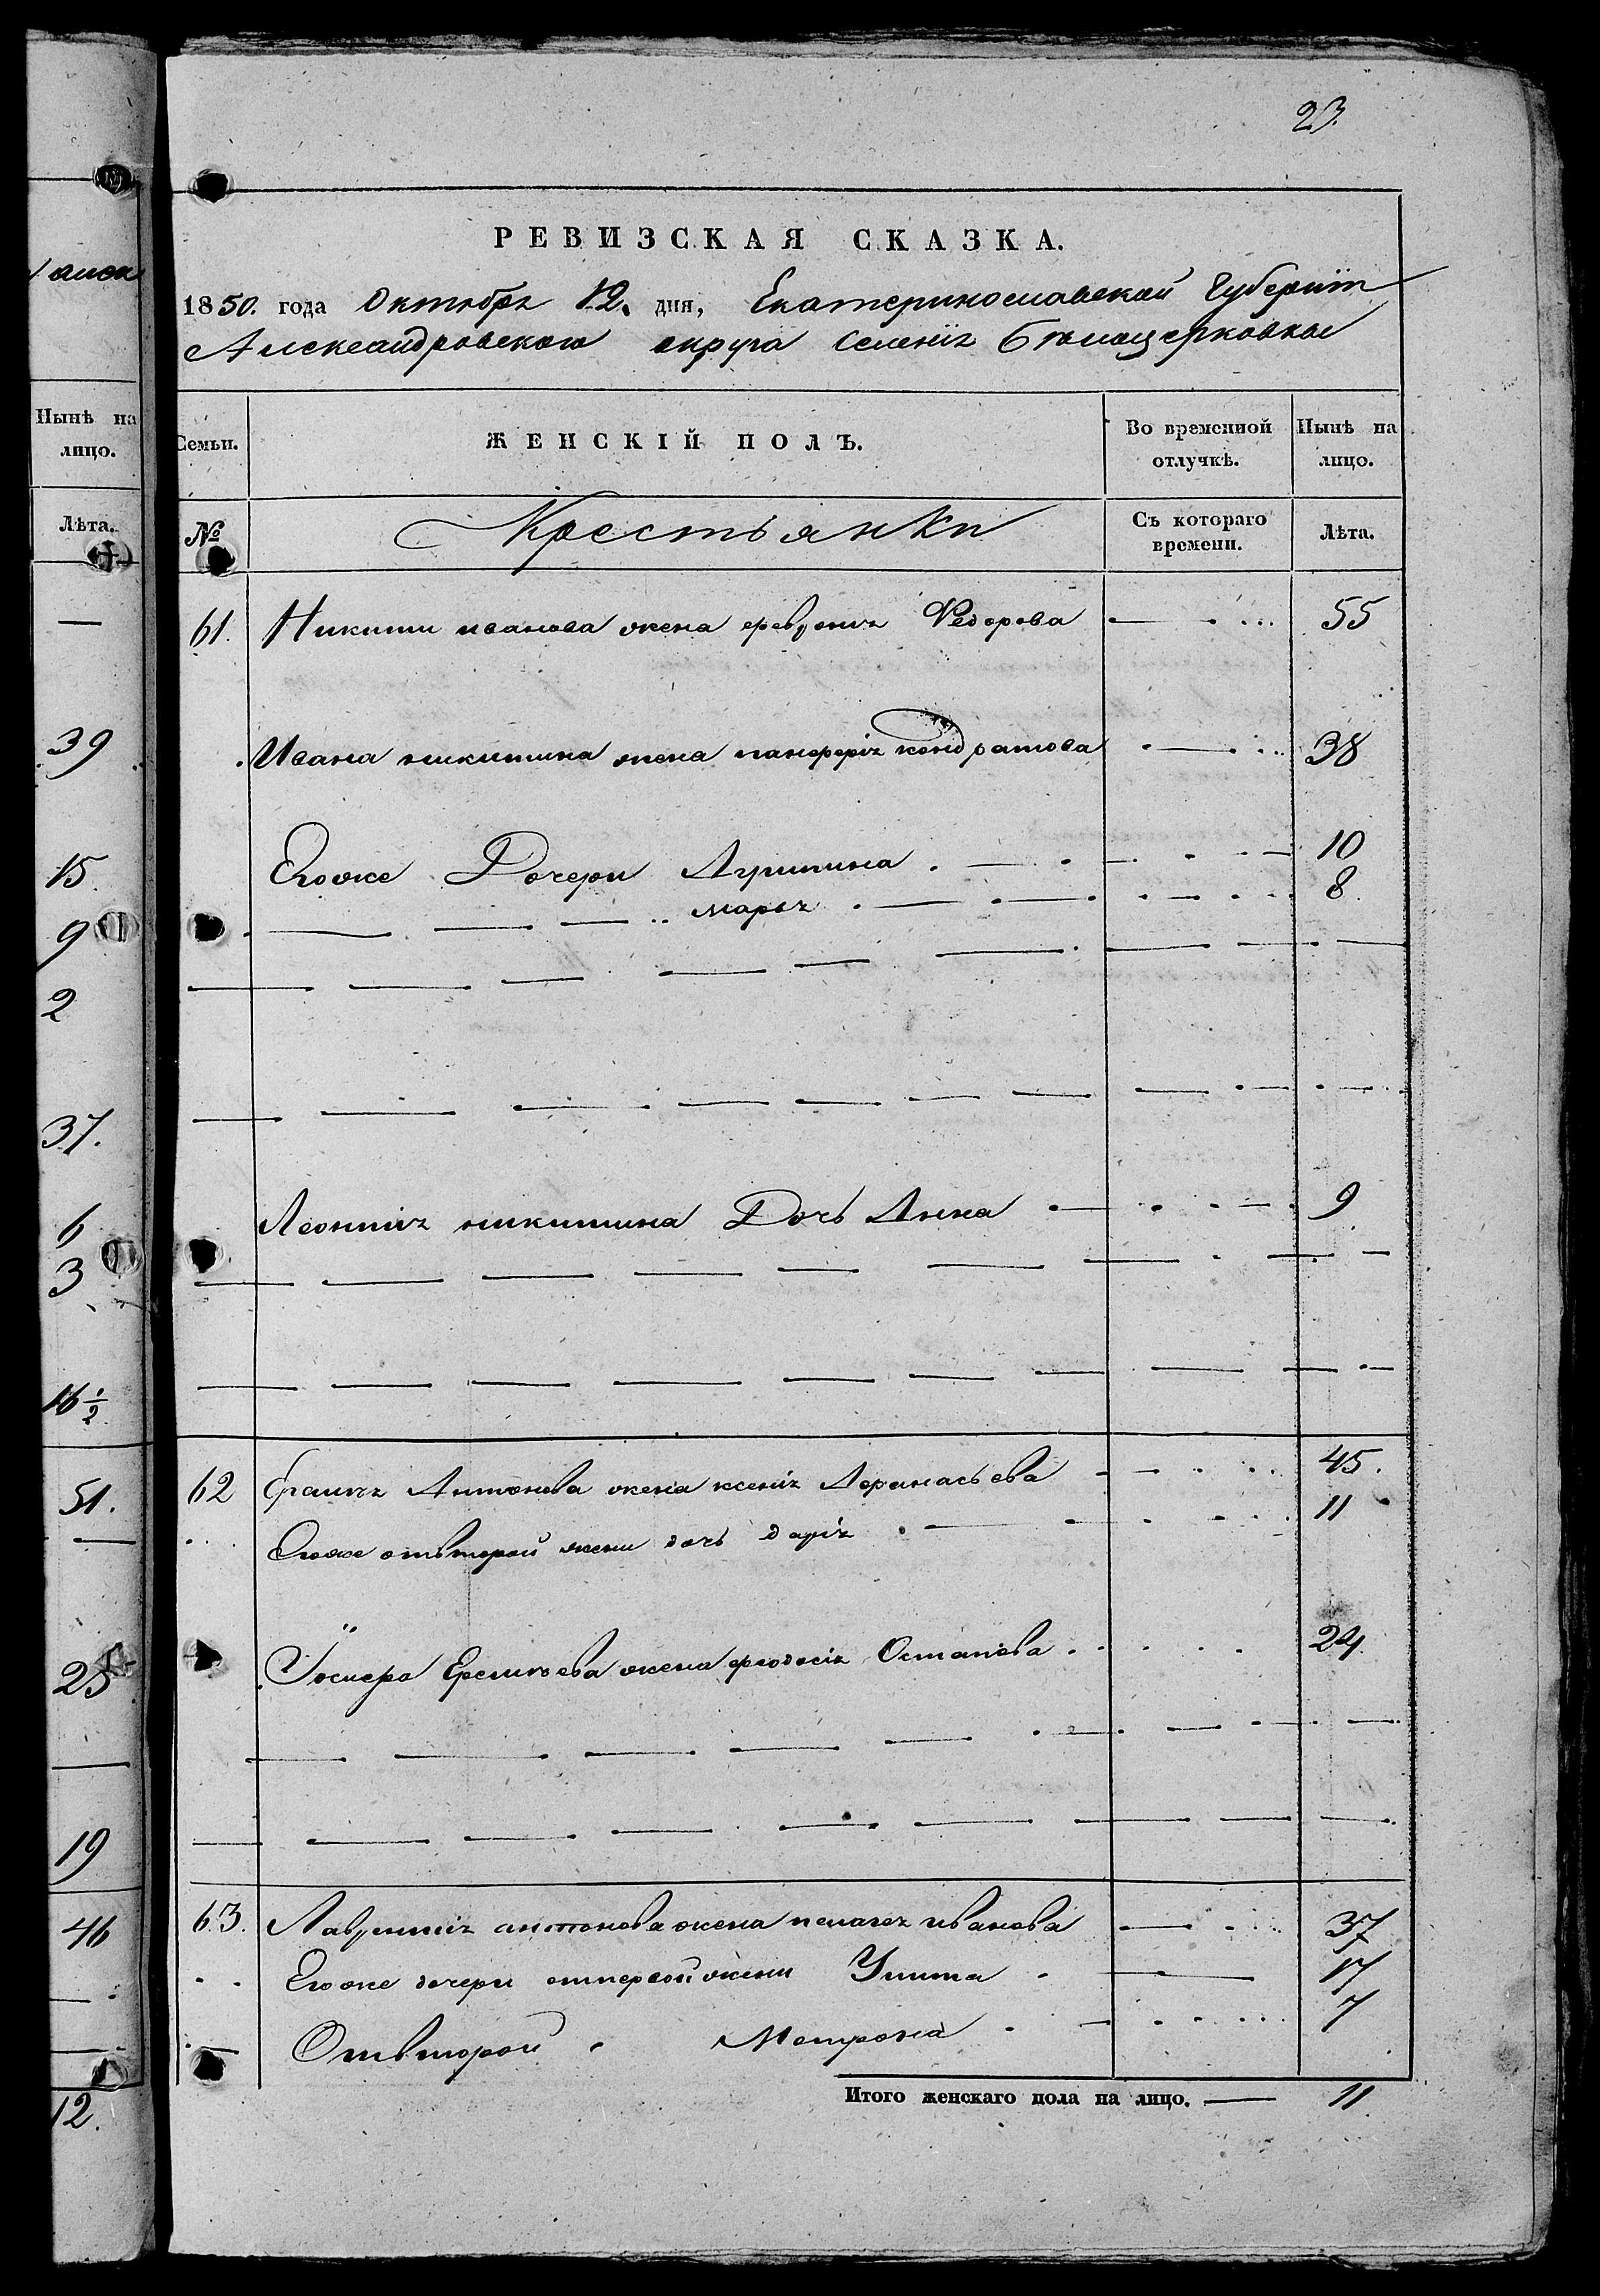 аиск
Нынѣ на
лицо.
Лѣта.
—
39
15
9
2
37.
6
3
16 1/2
51.
—
25
—
19
46
12.
23.
РЕВИЗСКАЯ СКАЗКА.
1850. года Октября 12. дня, Екатеринославской Губернїи
Александровскаго округа Селенїя Бѣлоцерковка
Семьи.
ЖЕНСКІЙ ПОЛЪ.
Во временной
отлучкѣ.
Нынѣ на
лицо.
№
Крестьянки
Съ котораго
времени.
Лѣта.
61. Никиты иванова жена Федорова 55
Ивана никитина жена кондратова 38
Егоже Дочери Агрипина 10
марья 8
Леонтия никитина Дочь Анна 9
62 Антонова жена ксенїя Афанасьева 45.
Егоже отвторой жены дочь дарїя 11
жена феодосїя Остапова 24
63. Лаврентїя антонова жена пелагея иванова 37
Егоже дочери отпервой жены Улита 17
Отвторой Мотрона 7
Итого женскаго пола на лицо. — 11